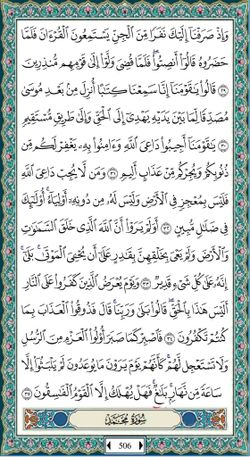 وَإِذْ صَرَفْنَآ إِلَيْكَ نَفَرًا مِّنَ ٱلْجِنِّ يَسْتَمِعُونَ ٱلْقُرْءَانَ فَلَمَّا
حَضَرُوهُ قَالُوٓا۟ أَنصِتُوا۟ ۖ فَلَمَّا قُضِىَ وَلَّوْا۟ إِلَىٰ قَوْمِهِم مُّنذِرِينَ
٢٩ قَالُوا۟ يَٰقَوْمَنَآ إِنَّا سَمِعْنَا كِتَٰبًا أُنزِلَ مِنۢ بَعْدِ مُوسَىٰ
مُصَدِّقًا لِّمَا بَيْنَ يَدَيْهِ يَهْدِىٓ إِلَى ٱلْحَقِّ وَإِلَىٰ طَرِيقٍ مُّسْتَقِيمٍ
٣٠ يَٰقَوْمَنَآ أَجِيبُوا۟ دَاعِىَ ٱللَّهِ وَءَامِنُوا۟ بِهِۦ يَغْفِرْ لَكُم مِّن
ذُنُوبِكُمْ وَيُجِرْكُم مِّنْ عَذَابٍ أَلِيمٍ ٣١ وَمَن لَّا يُجِبْ دَاعِىَ ٱللَّهِ
فَلَيْسَ بِمُعْجِزٍ فِى ٱلْأَرْضِ وَلَيْسَ لَهُۥ مِن دُونِهِۦٓ أَوْلِيَآءُ ۚ أُو۟لَٰٓئِكَ
فِى ضَلَٰلٍ مُّبِينٍ ٣٢ أَوَلَمْ يَرَوْا۟ أَنَّ ٱللَّهَ ٱلَّذِى خَلَقَ ٱلسَّمَٰوَٰتِ
وَٱلْأَرْضَ وَلَمْ يَعْىَ بِخَلْقِهِنَّ بِقَٰدِرٍ عَلَىٰٓ أَن يُحْـِۧىَ ٱلْمَوْتَىٰ ۚ بَلَىٰٓ
إِنَّهُۥ عَلَىٰ كُلِّ شَىْءٍ قَدِيرٌ ٣٣ وَيَوْمَ يُعْرَضُ ٱلَّذِينَ كَفَرُوا۟ عَلَى ٱلنَّارِ
أَلَيْسَ هَٰذَا بِٱلْحَقِّ ۖ قَالُوا۟ بَلَىٰ وَرَبِّنَا ۚ قَالَ فَذُوقُوا۟ ٱلْعَذَابَ بِمَا
كُنتُمْ تَكْفُرُونَ ٣٤ فَٱصْبِرْ كَمَا صَبَرَ أُو۟لُوا۟ ٱلْعَزْمِ مِنَ ٱلرُّسُلِ
وَلَا تَسْتَعْجِل لَّهُمْ ۚ كَأَنَّهُمْ يَوْمَ يَرَوْنَ مَا يُوعَدُونَ لَمْ يَلْبَثُوٓا۟ إِلَّا
سَاعَةً مِّن نَّهَارٍۭ ۚ بَلَٰغٌ ۚ فَهَلْ يُهْلَكُ إِلَّا ٱلْقَوْمُ ٱلْفَٰسِقُونَ ٣٥
سُورَةُ مُحَمَّدٍ
506